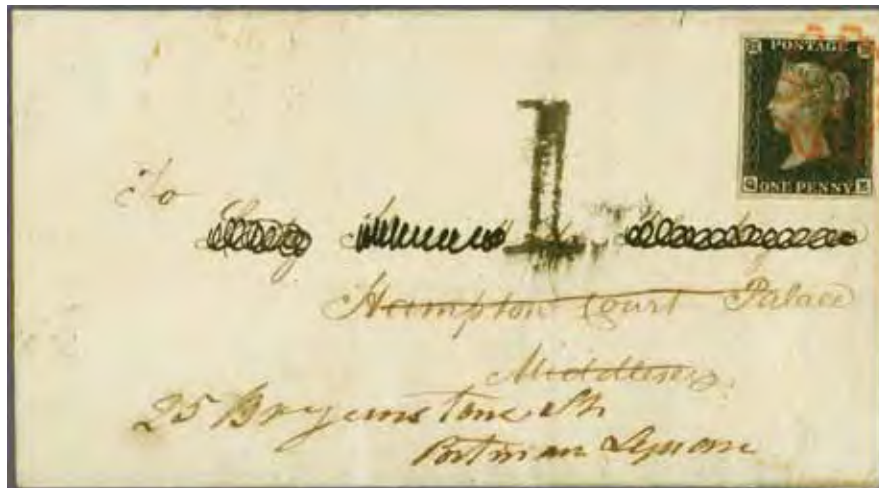 POSTAGE
ONE PENNY
1
To
Hampton Court Palace
Middlesex
25 Bryanstone St
Portman Square